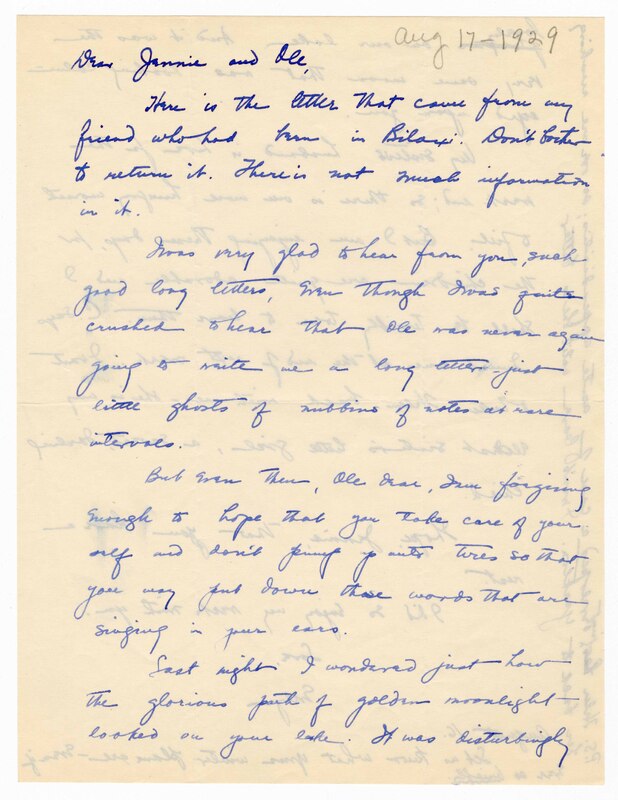 Aug 17-1929
Dear Jennie and Ole,
Here is the letter that came from my
friend who had been in Biloxi. Don't bother
to return it. There is not much information
in it.
I was very glad to hear from you, such
good long letters, even though I was quite
crushed to hear that Ole was never again
going to write me a long letter - just
little ghosts of nubbins of notes at rare
intervals.
But even then, Ole dear, I am forgiving
enough to hope that you take care of your
self and don't pump auto tires so that
you may put down those words that are
singing in your ears.
Last night I wondered just how
the glorious path of golden moonlight
looked on your lake. It was disturbingly